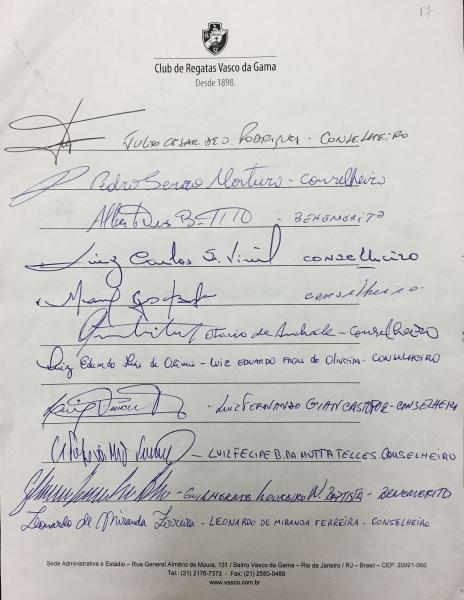 17
Club de Regatas Vasco da Gama
Desde 1898.
JULIO CESAR RODRIGUES - CONSELHEIRO
Pedro - Conselheiro
- BENEMERITO
Luiz Carlos S. CONSELHEIRO
Conselheiro
Otavio de Andrade - Conselheiro
Luiz Eduardo de Oliveira - LUIZ EDUARDO DE OLIVEIRA - CONSELHEIRO
- LUIZ FERNANDO GIANCASTOFOR - CONSELHEIRO
- LUIZ FELIPE B. DA MOTTA TELLES. CONSELHEIRO
- GUILHERME LOUREIRO N. BAPTISTA - BENEMERITO
Leonardo de Miranda Ferreira - LEONARDO DE MIRANDA FERREIRA - CONSELHEIRO
Sede Administrativa e Estádio – Rua General Almério de Moura, 131 / Bairro Vasco da Gama – Rio de Janeiro / RJ – Brasil – CEP: 20921-060
Tel.: (21) 2176-7373 - Fax: (21) 2580-0488
www.vasco.com.br